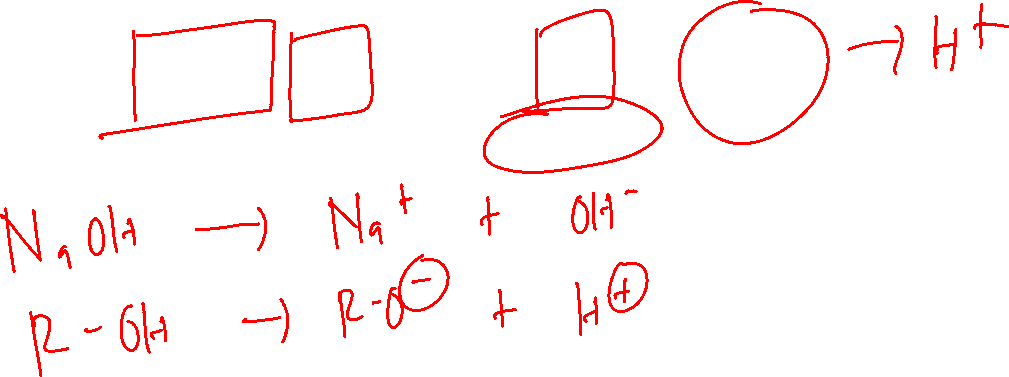 → H⁺
NaOH → Na⁺ + OH⁻
R-OH → R-O⁻ + H⁺